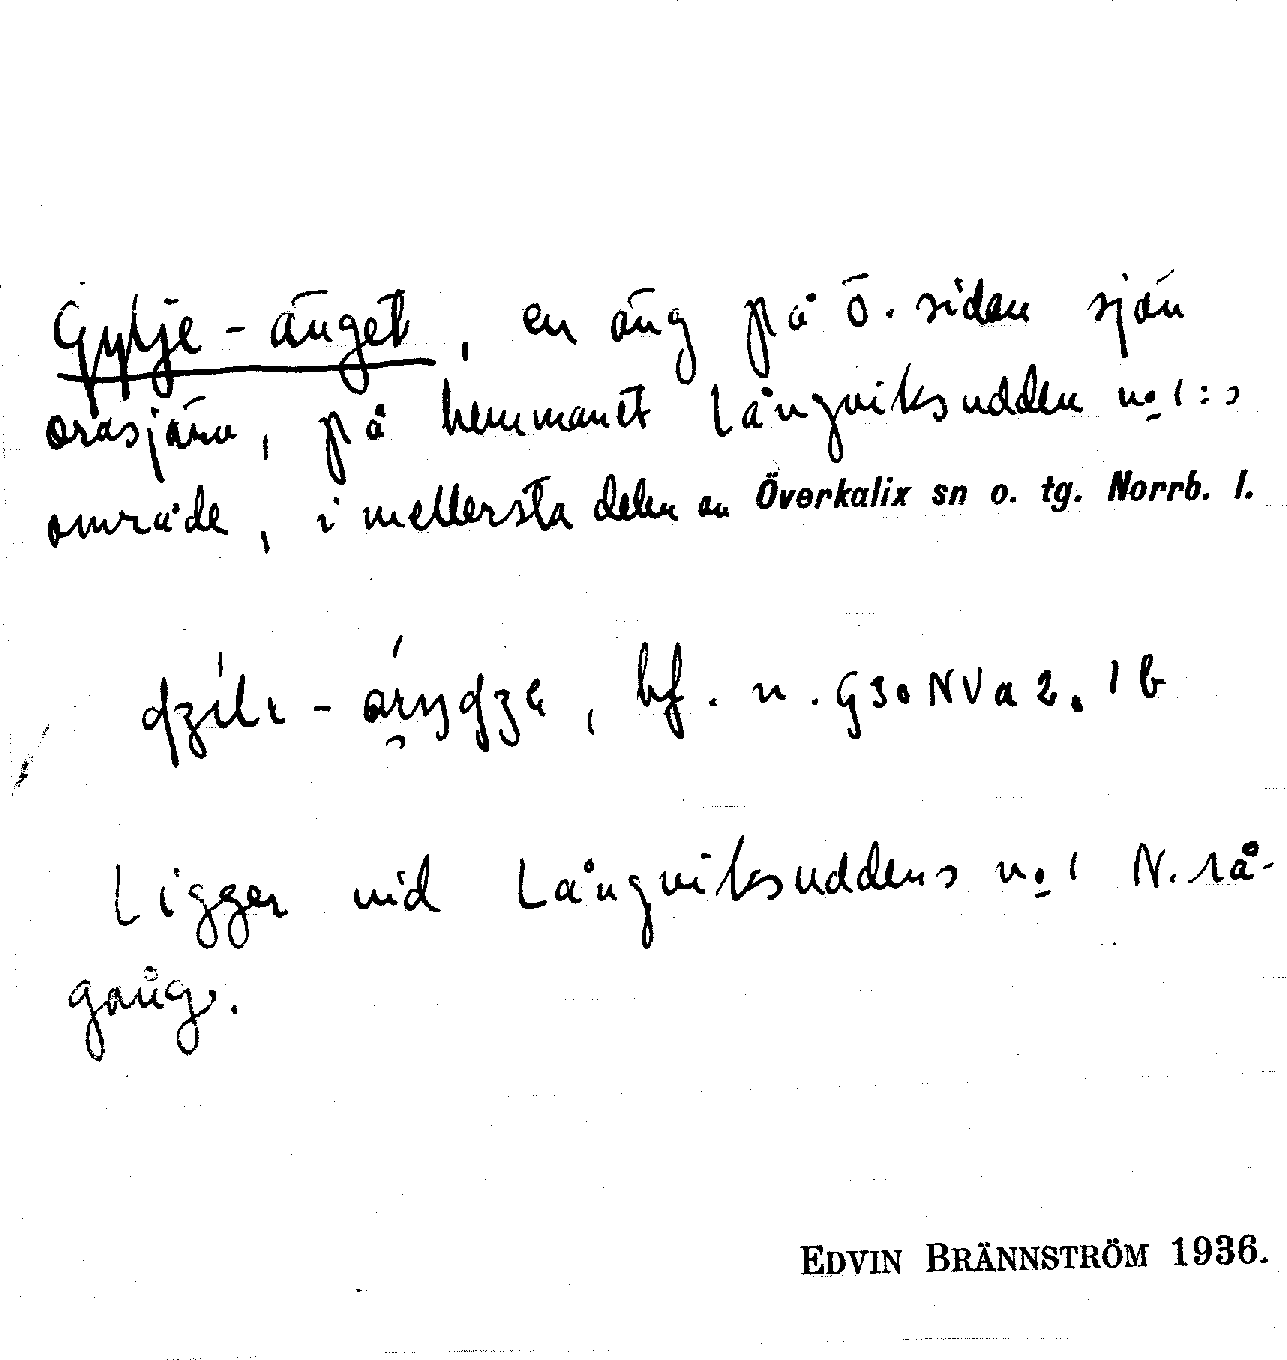 Gylje-änget, en äng på ö. sidan sjön
Oräsjärv, på hemmanet Långviksudden no 1:s
område, i mellersta delen av Överkalix sn o. tg. Norrb. l.
bf. n. G30NVa2.1b
Ligger vid Långviksuddens no 1 N. rå-
gång.
EDVIN BRÄNNSTRÖM 1936.